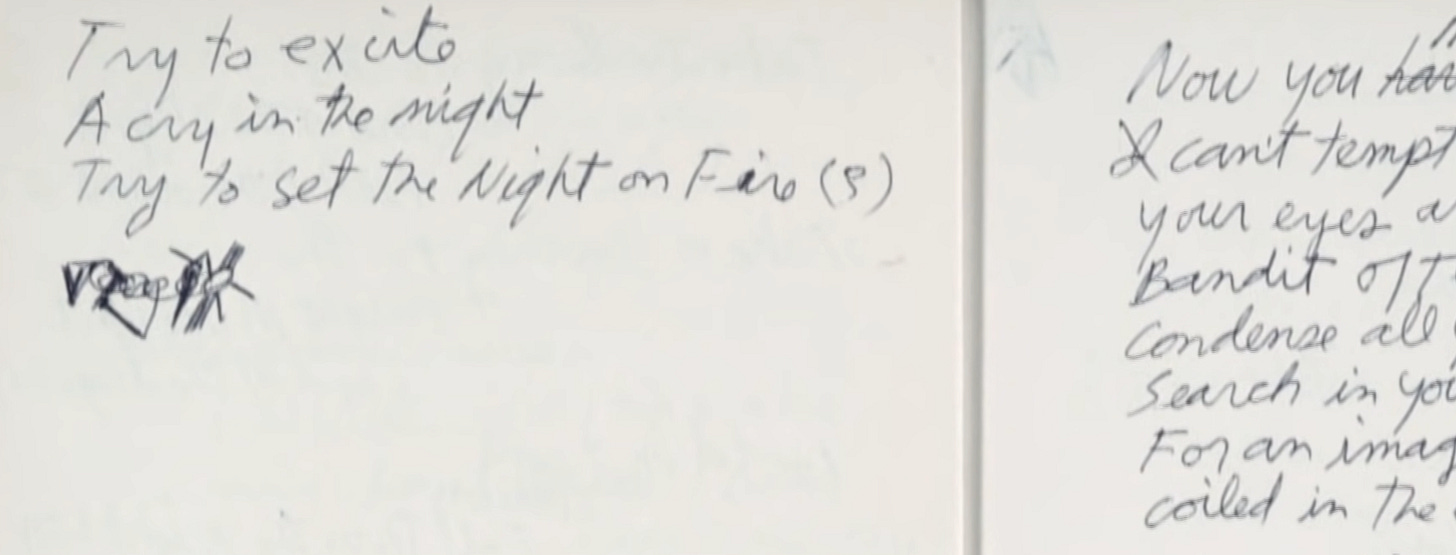 Try to excite
A cry in the night
Try to set the Night on Fire (s)
Now you
I can't tempt
your eyes
Bandit
Condense all
Search in
For an
coiled in The